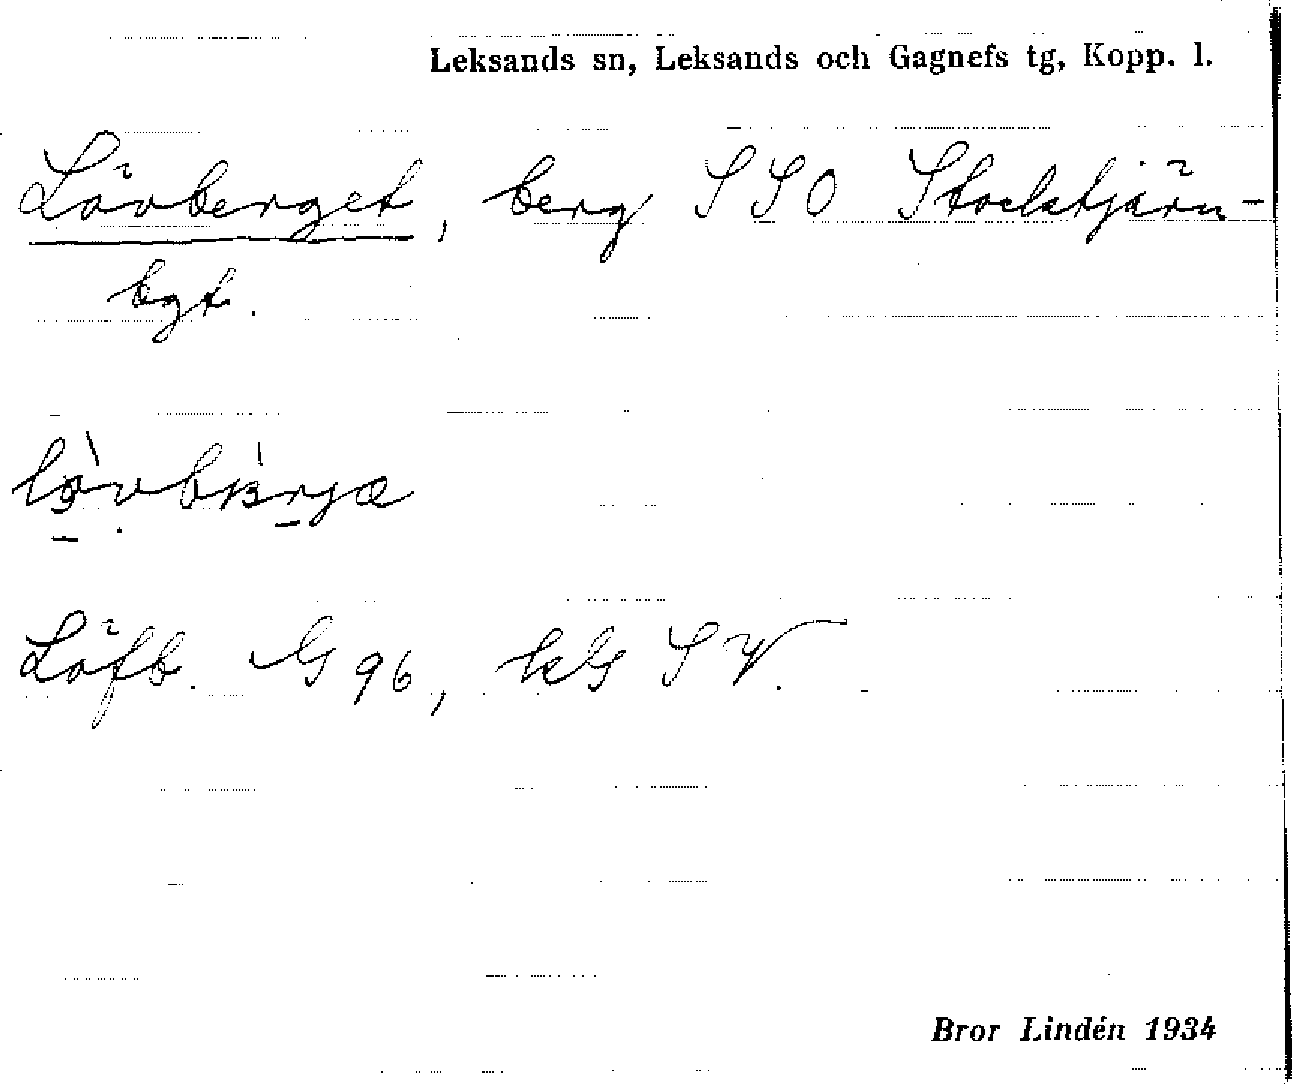 Leksands sn, Leksands och Gagnefs tg, Kopp. l.
Lövberget, berg SSO Stocktjärn-
bgt.
Löfb. G 96, kG SV.
Bror Lindén 1934